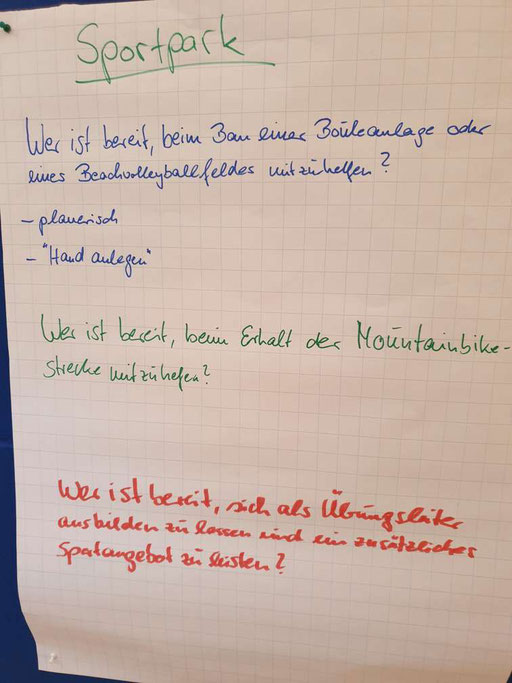 Sportpark
Wer ist bereit, beim Bau einer Bouleanlage oder
eines Beachvolleyballfeldes mitzuhelfen?
- planerisch
- "Hand anlegen"
Wer ist bereit, beim Erhalt der Mountainbike-
strecke mitzuhelfen?
Wer ist bereit, sich als Übungsleiter
ausbilden zu lassen und ein zusätzliches
Sportangebot zu leisten?